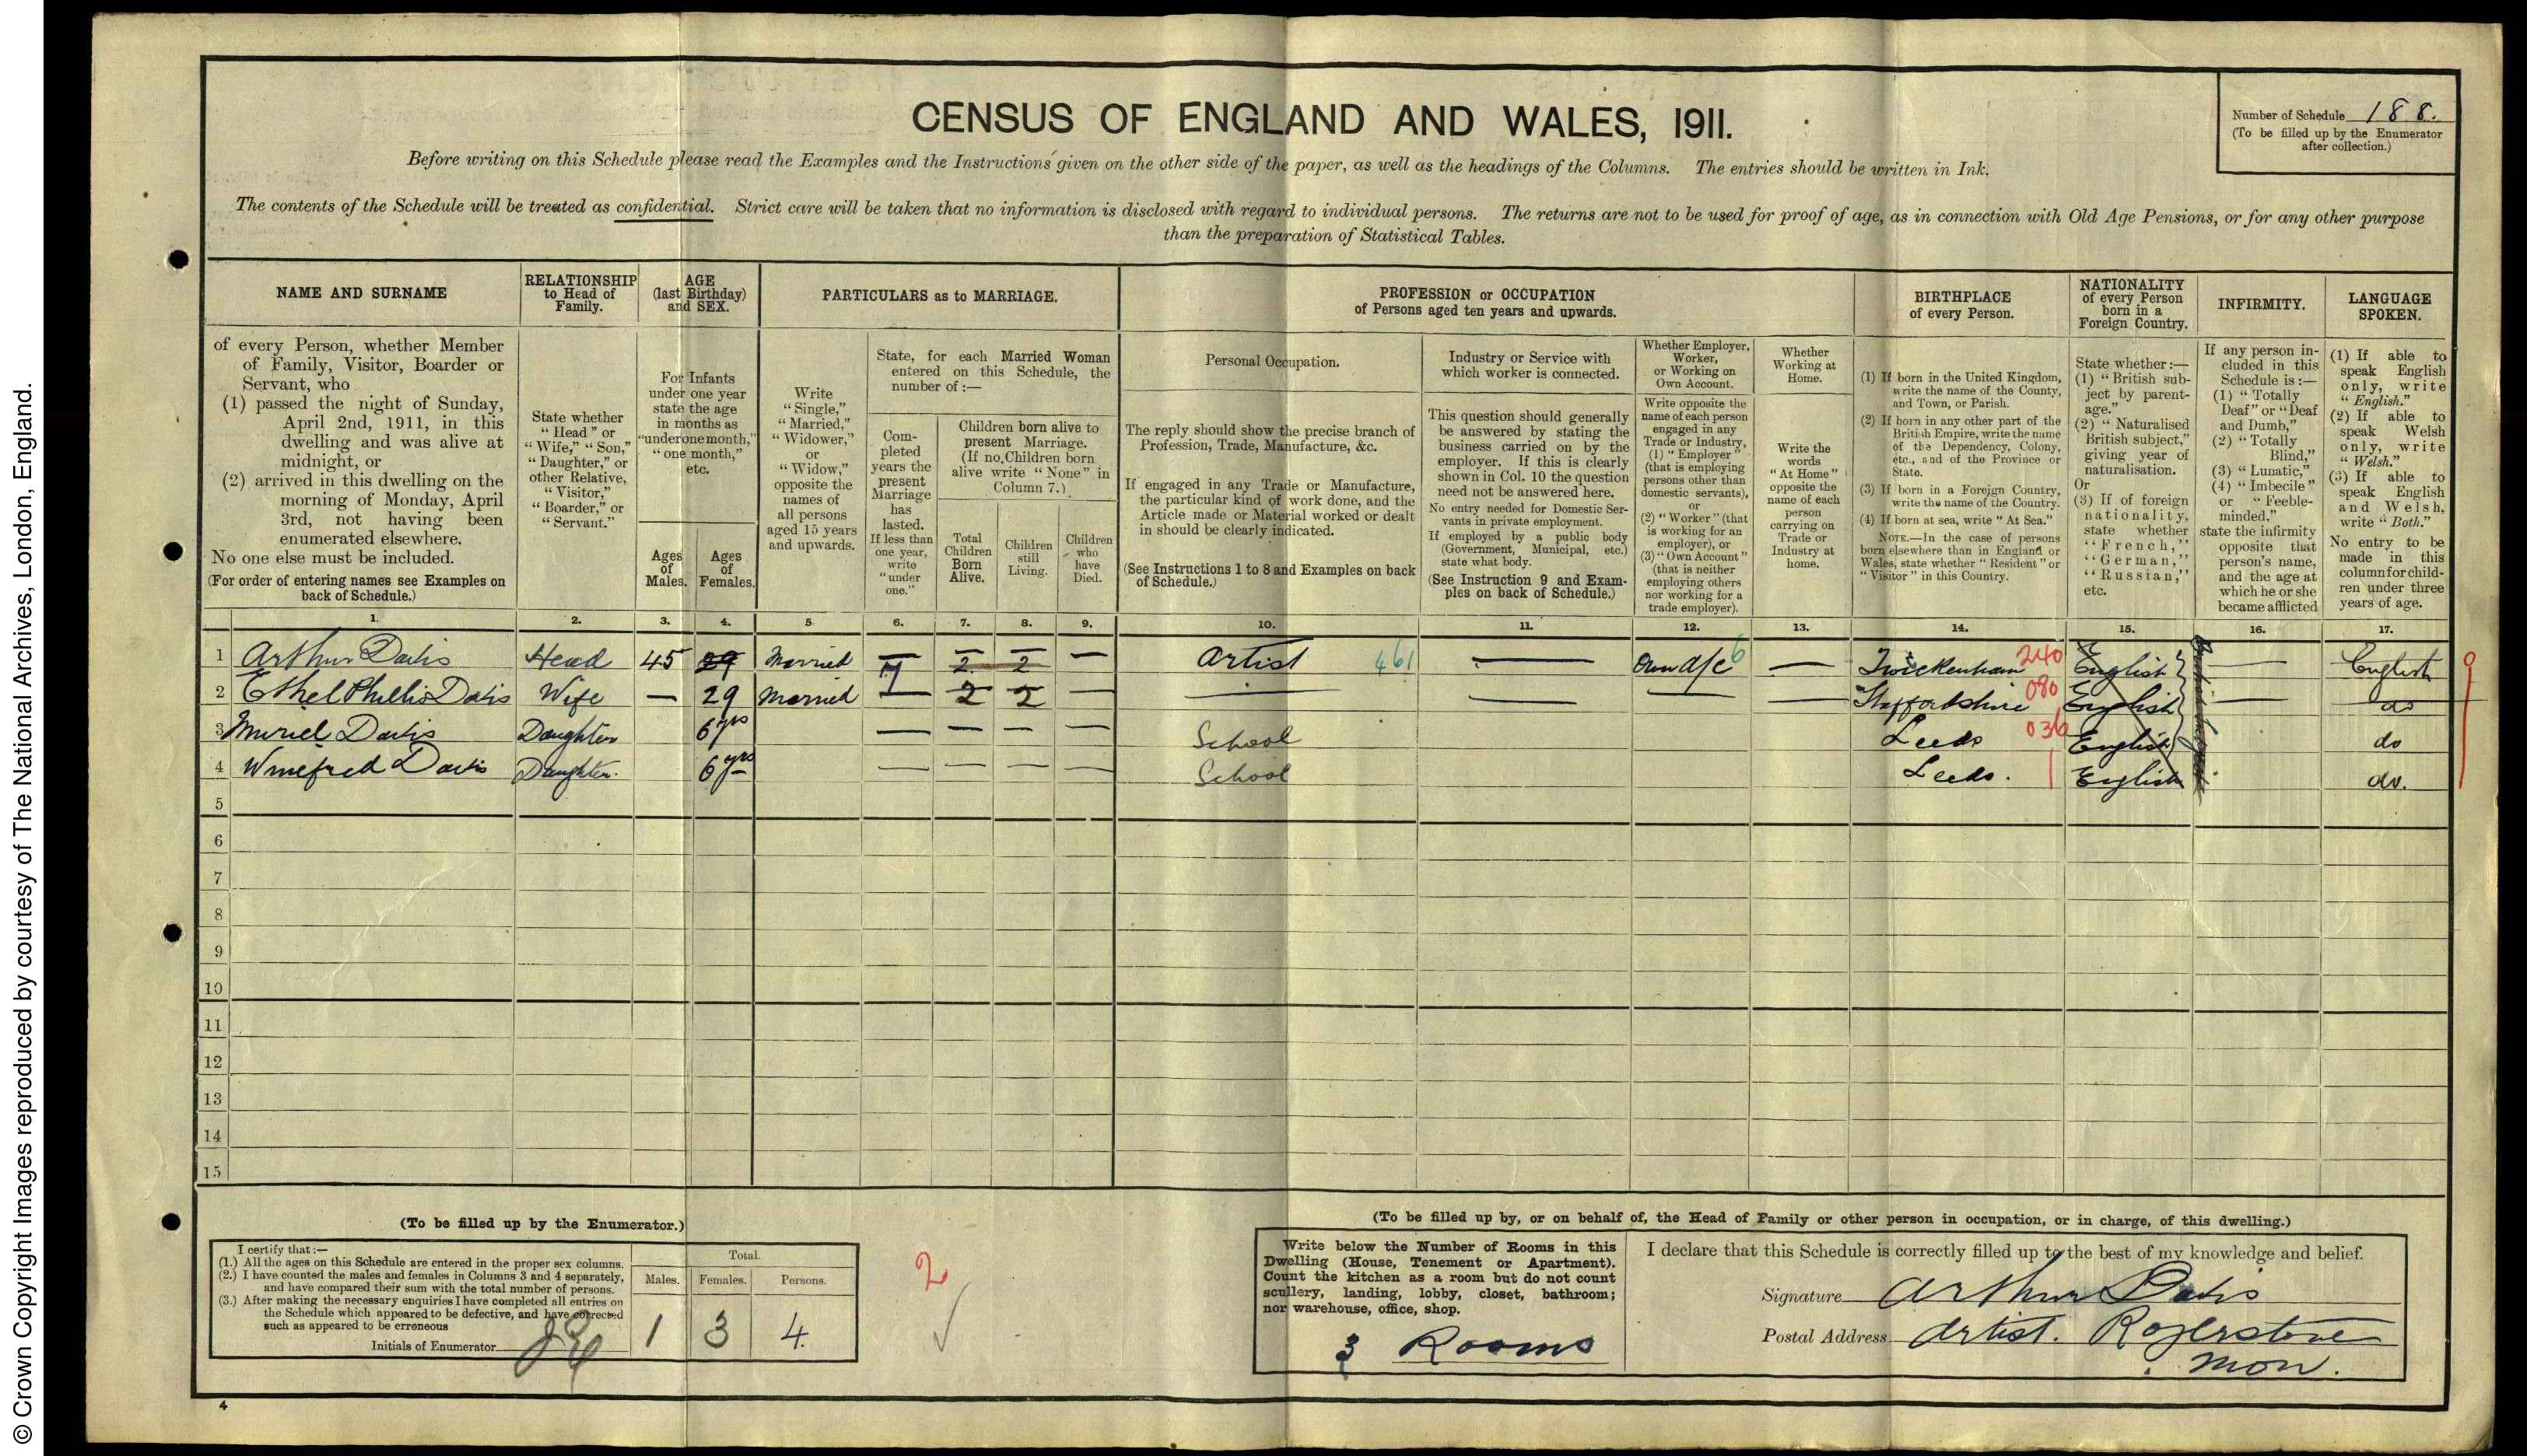 © Crown Copyright Images reproduced by courtesy of The National Archives, London, England.
CENSUS OF ENGLAND AND WALES, 1911.
Number of Schedule 188.
(To be filled up by the Enumerator
after collection.)
Before writing on this Schedule please read the Examples and the Instructions given on the other side of the paper, as well as the headings of the Columns. The entries should be written in Ink.
The contents of the Schedule will be treated as confidential. Strict care will be taken that no information is disclosed with regard to individual persons. The returns are not to be used for proof of age, as in connection with Old Age Pensions, or for any other purpose
than the preparation of Statistical Tables.
NAME AND SURNAME
of every Person, whether Member
of Family, Visitor, Boarder or
Servant, who
(1) passed the night of Sunday,
April 2nd, 1911, in this
dwelling and was alive at
midnight, or
(2) arrived in this dwelling on the
morning of Monday, April
3rd, not having been
enumerated elsewhere.
No one else must be included.
(For order of entering names see Examples on
back of Schedule.)
RELATIONSHIP
to Head of
Family.
State whether
"Head" or
"Wife," "Son,"
"Daughter," or
other Relative,
"Visitor,"
"Boarder," or
"Servant."
AGE
(last Birthday)
and SEX.
For Infants
under one year
state the age
in months as
"under one month,"
"one month,"
etc.
Ages
of
Males.
Ages
of
Females.
PARTICULARS as to MARRIAGE.
Write
"Single,"
"Married,"
"Widower,"
or
"Widow,"
opposite the
names of
all persons
aged 15 years
and upwards.
State, for each Married Woman
entered on this Schedule, the
number of :—
Com-
pleted
years the
present
Marriage
has
lasted.
If less than
one year,
write
"under
one."
Children born alive to
present Marriage.
(If no Children born
alive write "None" in
Column 7.)
Total
Children
Born
Alive.
Children
still
Living.
Children
who
have
Died.
PROFESSION or OCCUPATION
of Persons aged ten years and upwards.
Personal Occupation.
The reply should show the precise branch of
Profession, Trade, Manufacture, &c.
If engaged in any Trade or Manufacture,
the particular kind of work done, and the
Article made or Material worked or dealt
in should be clearly indicated.
(See Instructions 1 to 8 and Examples on back
of Schedule.)
Industry or Service with
which worker is connected.
This question should generally
be answered by stating the
business carried on by the
employer. If this is clearly
shown in Col. 10 the question
need not be answered here.
No entry needed for Domestic Ser-
vants in private employment.
If employed by a public body
(Government, Municipal, etc.)
state what body.
(See Instruction 9 and Exam-
ples on back of Schedule.)
Whether Employer,
Worker,
or Working on
Own Account.
Write opposite the
name of each person
engaged in any
Trade or Industry,
(1) "Employer"
(that is employing
persons other than
domestic servants),
or
(2) "Worker" (that
is working for an
employer), or
(3) "Own Account"
(that is neither
employing others
nor working for a
trade employer).
Whether
Working at
Home.
Write the
words
"At Home"
opposite the
name of each
person
carrying on
Trade or
Industry at
home.
BIRTHPLACE
of every Person.
(1) If born in the United Kingdom,
write the name of the County,
and Town, or Parish.
(2) If born in any other part of the
British Empire, write the name
of the Dependency, Colony,
etc., and of the Province or
State.
(3) If born in a Foreign Country,
write the name of the Country.
(4) If born at sea, write "At Sea."
NOTE.—In the case of persons
born elsewhere than in England or
Wales, state whether "Resident" or
"Visitor" in this Country.
NATIONALITY
of every Person
born in a
Foreign Country.
State whether :—
(1) "British sub-
ject by parent-
age."
(2) "Naturalised
British subject,"
giving year of
naturalisation.
Or
(3) If of foreign
nationality,
state whether
"French,"
"German,"
"Russian,"
etc.
INFIRMITY.
If any person in-
cluded in this
Schedule is :—
(1) "Totally
Deaf" or "Deaf
and Dumb,"
(2) "Totally
Blind,"
(3) "Lunatic,"
(4) "Imbecile"
or "Feeble-
minded,"
state the infirmity
opposite that
person's name,
and the age at
which he or she
became afflicted
LANGUAGE
SPOKEN.
(1) If able to
speak English
only, write
"English."
(2) If able to
speak Welsh
only, write
"Welsh."
(3) If able to
speak English
and Welsh,
write "Both."
No entry to be
made in this
column for child-
ren under three
years of age.
1. 2. 3. 4. 5 6. 7. 8. 9. 10. 11. 12. 13. 14. 15. 16. 17.
1 Arthur Head 45 29 Married 7 2 2 — Artist 461 — Own A/c 6 — Twickenham 240 English — English
2 Ethel Wife — 29 Married 2 2 — — — Staffordshire 080 English — do
3 Muriel Daughter 6 yrs — — — — School Leeds 036 English do
4 Winefred Daughter. 6 yrs — — — — School Leeds. English do.
5
6
7
8
9
10
11
12
13
14
15
(To be filled up by the Enumerator.)
I certify that :—
(1.) All the ages on this Schedule are entered in the proper sex columns.
(2.) I have counted the males and females in Columns 3 and 4 separately,
and have compared their sum with the total number of persons.
(3.) After making the necessary enquiries I have completed all entries on
the Schedule which appeared to be defective, and have corrected
such as appeared to be erroneous
Initials of Enumerator
Total.
Males. Females. Persons.
1 3 4.
2
(To be filled up by, or on behalf of, the Head of Family or other person in occupation, or in charge, of this dwelling.)
Write below the Number of Rooms in this
Dwelling (House, Tenement or Apartment).
Count the kitchen as a room but do not count
scullery, landing, lobby, closet, bathroom;
nor warehouse, office, shop.
3 Rooms
I declare that this Schedule is correctly filled up to the best of my knowledge and belief.
Signature Arthur
Postal Address Artist. Rogerstone
Mon.
4